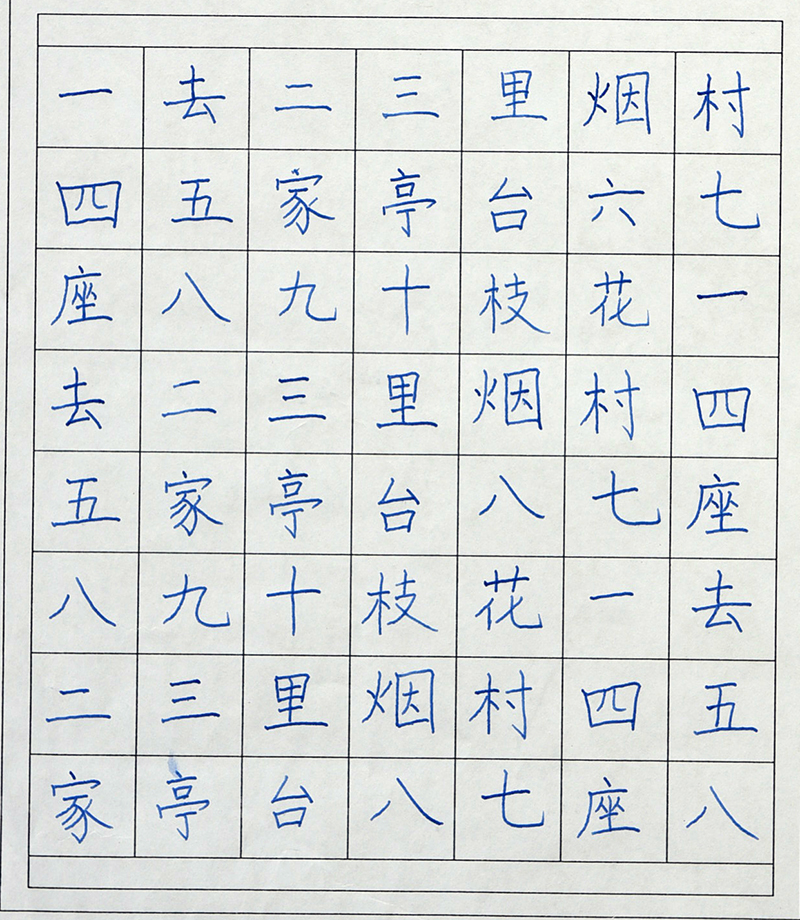 一去二三里烟村
四五家亭台六七
座八九十枝花一
去二三里烟村四
五家亭台八七座
八九十枝花一去
二三里烟村四五
家亭台八七座八